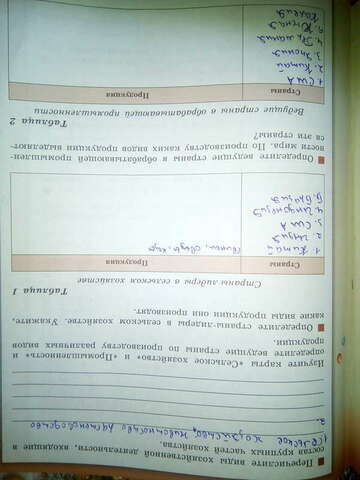 Перечислите виды хозяйственной деятельности, входящие в
состав крупных частей хозяйства.
2.
Изучите карты «Сельское хозяйство» и «Промышленность» и
определите ведущие страны по производству различных видов
продукции.
Определите страны-лидеры в сельском хозяйстве. Укажите,
какие виды продукции они производят.
Таблица 1
Страны лидеры в сельском хозяйстве
Страны Продукция
1. Китай
2. Индия
3. США
4. Индонезия
5. Бразилия
Определите ведущие страны в обрабатывающей промышлен-
ности мира. По производству каких видов продукции выделяют-
ся эти страны?
Таблица 2
Ведущие страны в обрабатывающей промышленности
Страны Продукция
1. США
2. Китай
3. Япония